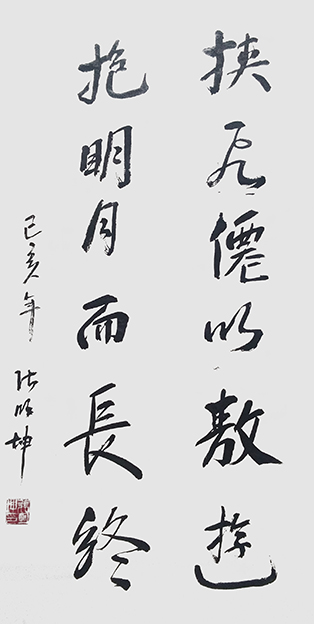 挟飛僊以敖遊
抱明月而長終
己亥年 张昭坤